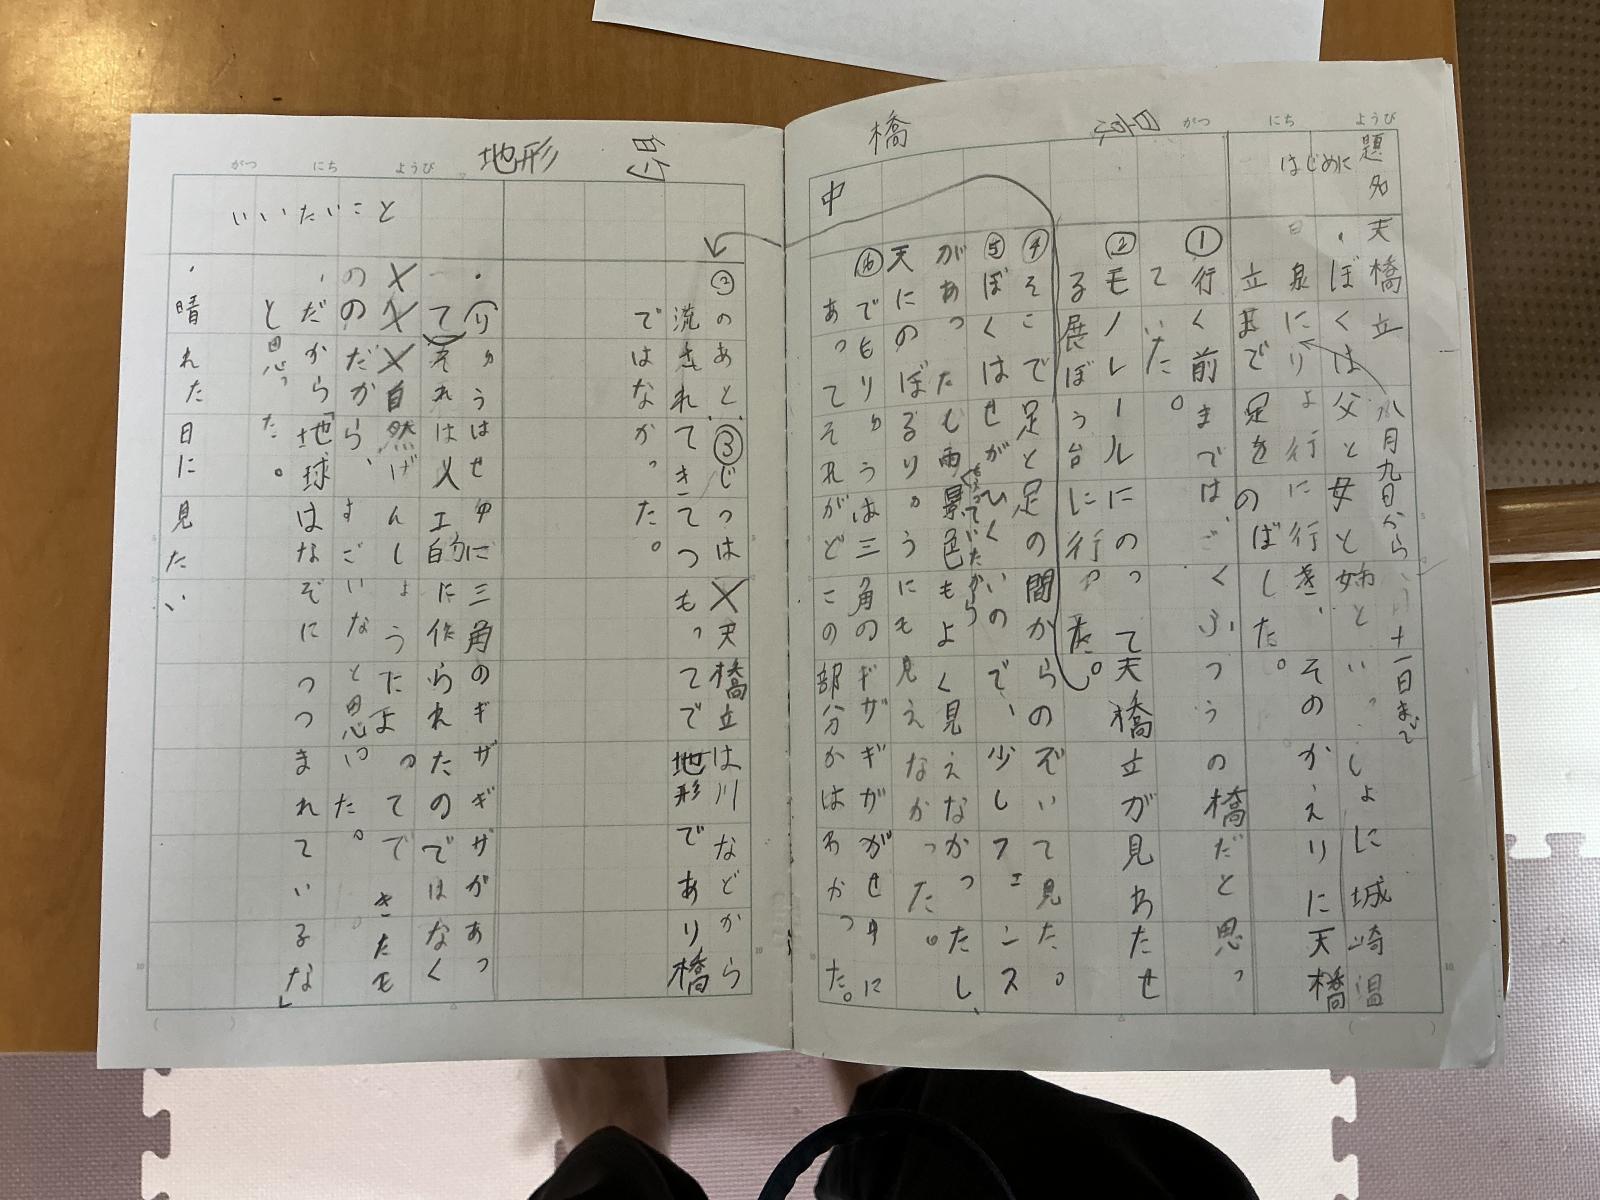 橋
がつ
にち
ようび
題名
天橋立
はじめに
八月九日から
十一日まで
・ぼくは父と母と姉といっしょに城崎温
泉にりょ行に行き、そのかえりに天橋
立まで足をのばした。
①行く前まではごくふつうの橋だと思っ
ていた。
中
②モノレールにのって天橋立が見わたせ
る展ぼう台に行った。
④そこで足と足の間からのぞいて見た。
⑤ぼくはせがひくいので、少しフェンス
がもっていたから
があったし雨景色もよく見えなかったし、
天にのぼるりゅうにも見えなかった。
⑥でもりゅうは三角のギザギザがせ中に
あってそれがどこの部分かはわかった。
がつ
にち
ようび
地形
的
②のあと、③じつは天橋立は川などから
流されてきてつもってで地形であり橋
ではなかった。
いいたいこと
・りゅうはせ中に三角のギザギザがあっ
てそれは人工的に作られたのではなく
自然げんしょうによってできたも
のだから、すごいなと思った。
・だから「地球はなぞにつつまれているな」
と思った。
・晴れた日に見たい